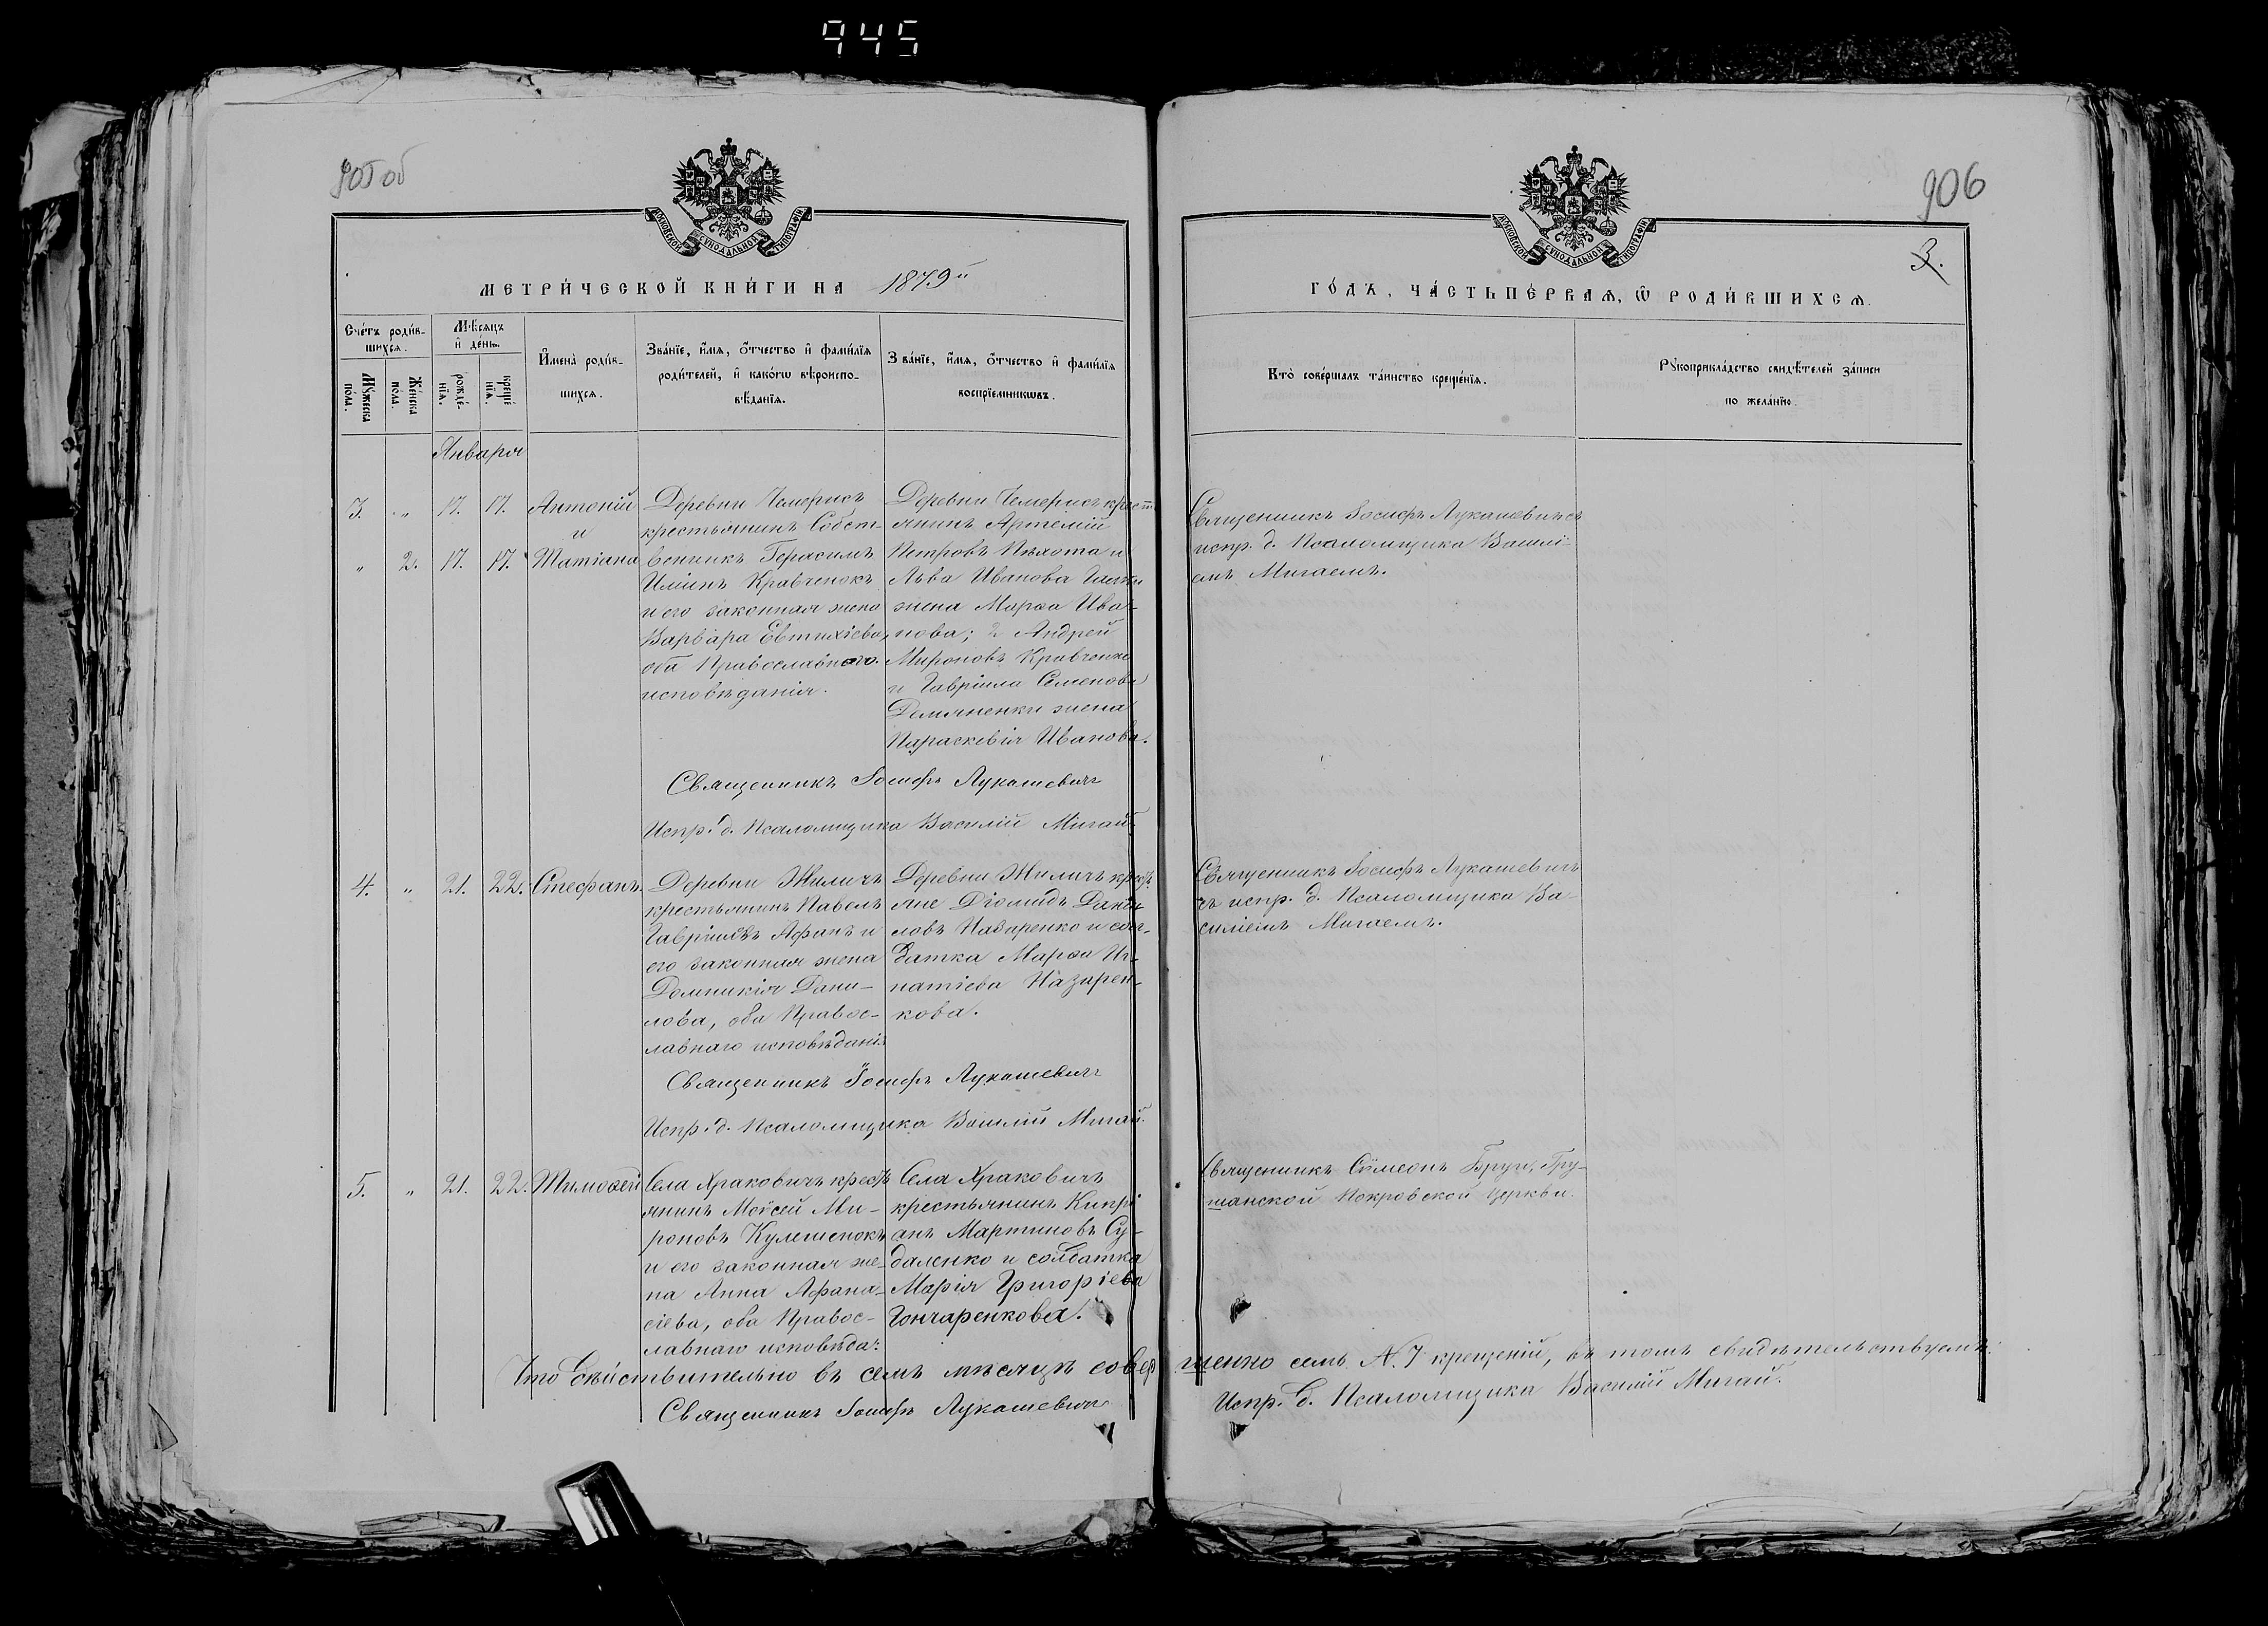 945
905 об
906
3.
МОСКОВСКОЙ СѴНОДАЛЬНОЙ ТИПОГРАФІИ
МОСКОВСКОЙ СѴНОДАЛЬНОЙ ТИПОГРАФІИ
МЕТРИ́ЧЕСКОЙ КНИ́ГИ НА 1879й
ГО́ДЪ, ЧА́СТЬ ПЕ́РВАѦ, Ѡ҆ РОДИ́ВШИХСѦ.
Сче́тъ роди́в-
шихсѧ.
Мѣ́сѧцъ
и҆ де́нь.
Мꙋ́жеска
по́ла.
Же́нска
по́ла.
рожде́-
нїѧ.
креще́
нїѧ.
И҆мена̀ роди́в-
шихсѧ.
Зва́нїе, и҆́мѧ, ѻ҆́тчество и҆ фами́лїѧ
роди́телей, и҆ како́гѡ вѣроиспо-
вѣ́данїѧ.
Зва́нїе, и҆́мѧ, ѻ҆́тчество и҆ фами́лїѧ
воспрїе́мникѡвъ.
Кто̀ соверша́лъ та́инство креще́нїѧ.
Рꙋкоприкла́дство свидѣ́телей за́писи
по жела́нїю.
Января
3. „ 17. 17. Антоній
и
„ 2. 17. 17. Татіана
Деревни Чемерисъ
крестьянинъ Собст-
венникъ Герасимъ
Кравченокъ
и его законная жена
Варвара Евтихіева,
оба Православнаго
исповѣданія.
Деревни Чемерисъ крест
янинъ Артемій
Петровъ Пѣхота и
Льва Иванова
жена Марѳа Ива-
нова; 2 Андрей
Мироновъ Кравченко
и Гавріила Семенова
Демяненки жена
Параскевія Иванова.
Священникъ Іосифъ Лукашевичъ съ
испр. д. Псаломщика Василі-
емъ Мигаемъ.
Священникъ Іосифъ Лукашевичъ
Испр. д. Псаломщика Василій Мигай
4. „ 21. 22. Стефанъ.
Деревни Жиличъ
крестьянинъ Павелъ
Гавріиловъ и
его законная жена
Домникія Дани-
лова, оба Правос-
лавнаго исповѣданія
Деревни Жиличъ крестъ
яне Діомидъ Дани
ловъ Назаренко и сол-
датка Марѳа Иг-
натіева Назарен-
кова.
Священникъ Іосифъ Лукашевичъ
съ испр. д. Псаломщика Ва-
силіемъ Мигаемъ.
Священникъ Іосифъ Лукашевичъ
Испр. д. Псаломщика Василій Мигай.
5. „ 21. 22. Тимоѳей
Села Храковичъ кресть
янинъ Моѵсей Ми-
роновъ Кулешенокъ
и его законная же-
на Анна Афана-
сіева, оба Правос-
лавнаго исповѣда:
Села Храковичъ
крестьянинъ Кипрі
анъ Мартиновъ Су-
даленко и солдатка
Марія Григоріева
Гончаренкова.
Священникъ Сѵмеонъ Брун, Гру-
шанской Покровской церкви.
Что дѣйствительно въ семъ мѣсяцѣ совершенно семь №7 крещеній, въ томъ свидѣтельствуемъ:
Священникъ Іосифъ Лукашевичъ Испр. д. Псаломщика Василій Мигай.